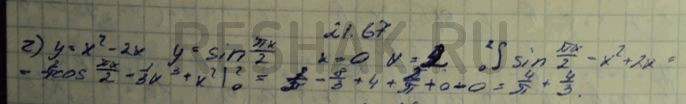 21.67
г) y = x² - 2x   y = sin πx/2   x = 0   x = 2   ₀²∫ sin πx/2 - x² + 2x =
= cos πx/2 - 1/3 x³ + x² |₀² = 2/π - 8/3 + 4 + 2/π + 0 - 0 = 4/π + 4/3.
RESHAK.RU